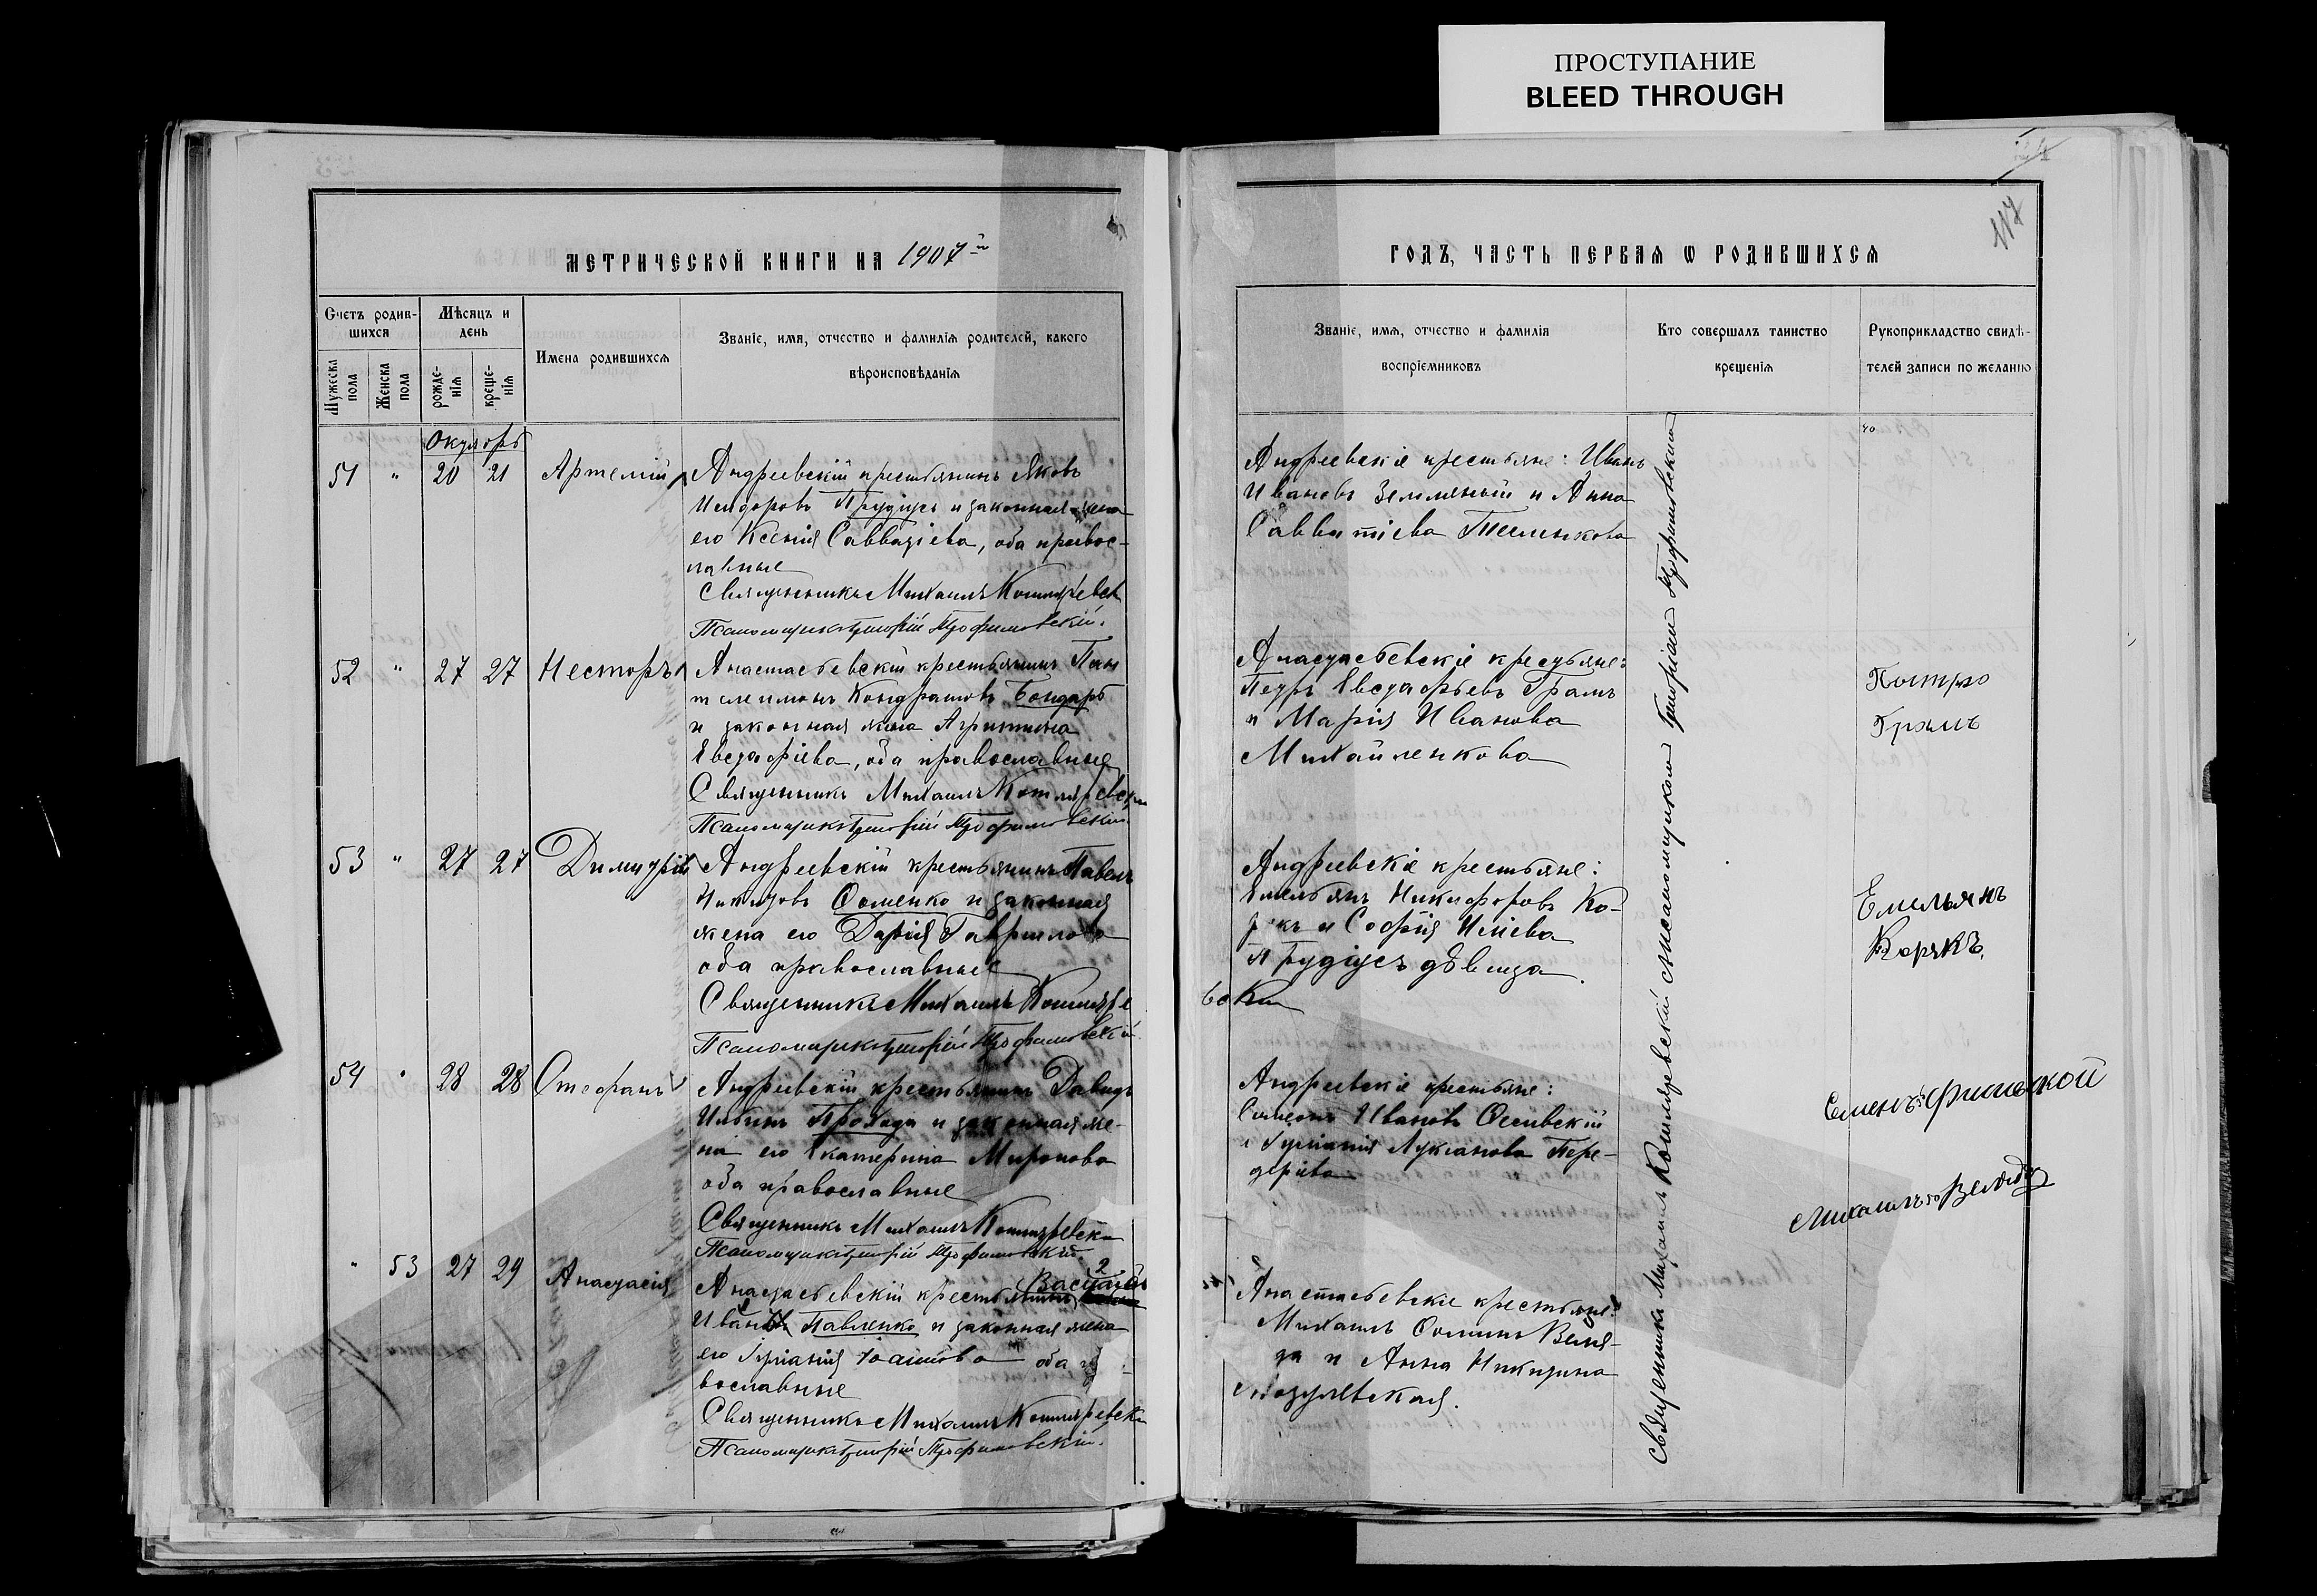 ПРОСТУПАНИЕ
BLEED THROUGH
117
МЕТРИЧЕСКОЙ КНИГИ НА 1907й
ГОДЪ, ЧАСТЬ ПЕРВАЯ Ѡ РОДИВШИХСЯ
Счетъ родив-
шихся
Мужеска пола
Женска пола
Мѣсяцъ и
день
рожде-
нія
креще-
нія
Имена родившихся
Званіе, имя, отчество и фамилія родителей, какого
вѣроисповѣданія
Званіе, имя, отчество и фамилія
воспріемниковъ
Кто совершалъ таинство
крещенія
Рукоприкладство свидѣ-
телей записи по желанію
Октябрь
51 " 20 21 Артемій
Андреевскій крестьянинъ Яковъ
Исидоровъ Прудіусъ и законная жена
его Ксенія Савватіева, оба правос-
лавные
Священникъ Михаилъ Котляревск
Псаломщикъ Григорій Трофимовскій.
Андреевскіе крестьяне: Иванъ
Ивановъ Земляный и Анна
Савватіева Тесленкова
52 " 27 27 Несторъ
Анастасьевскій крестьянинъ Пан
телеимонъ Кондратовъ Бондарь
и законная жена Агриппина
Евстафіева, оба православные
Священникъ Михаилъ Котляревск
Псаломщикъ Григорій Трофимовскій.
Анастасьевскіе крестьяне:
Петръ Евстафьевъ Грамъ
и Марія Иванова
Михайленкова
Грамъ
53 " 27 27 Димитрій
Андреевскій крестьянинъ Павелъ
Никитовъ Ѳоменко и законная
жена его Дарія Гаврилова
оба православные
Священникъ Михаилъ Котляре
вски
Псаломщикъ Григорій Трофимовскій
Андреевскіе крестьяне:
Емельянъ Никифоровъ Ко-
рякъ и Софія Иліева
Прудіусъ дѣвица.
Емельянъ
Корякъ.
54 " 28 28 Стефанъ
Андреевскій крестьянинъ Давидъ
Ильинъ Прохода и законная же-
на его Екатерина Миронова
оба православные
Священникъ Михаилъ Котляревск
Псаломщикъ Григорій Трофимовскій.
Андреевскіе крестьяне:
Симеонъ Ивановъ
и Іуліанія Лукіанова Пере-
деріева
Семенъ
" 53 27 29 Анастасія
Анастасьевскій крестьянинъ Василій
Ивановъ Павленко и законная жена
его Іуліанія оба
вославные
Священникъ Михаилъ Котляревск
Псаломщикъ Григорій Трофимовскій.
Анастасьевскіе крестьяне:
Михаилъ Ѳоминъ Веля-
да и Анна Никитина
Михаилъ
Священникъ Михаилъ Котляревскій съ псаломщикомъ Григоріемъ Трофимовскимъ